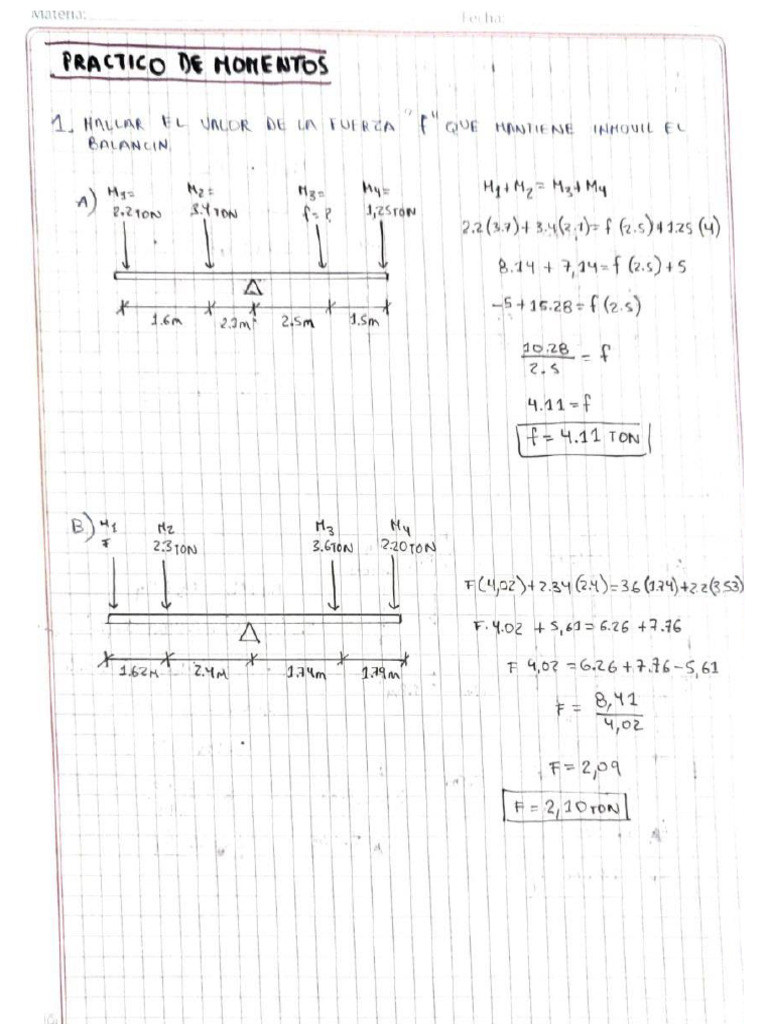 Materia:
Fecha:
PRACTICO DE MOMENTOS
1. HALLAR EL VALOR DE LA FUERZA "f" QUE MANTIENE INMOVIL EL
BALANCIN.
A)
M1= M2= M3= M4=
2.2TON 3.4TON f=? 1,25TON
1.6m 2.1m 2.5m 1.5m
M1+M2=M3+M4
2.2(3.7)+3.4(2.1)=f(2.5)+1.25(4)
8.14+7,14=f(2.5)+5
-5+15.28=f(2.5)
10.28
2.5
=f
4.11=f
f=4.11 TON
B)
M1 M2 M3 M4
F 2.3TON 3.6TON 2.20TON
1.62M 2.4M 1.74m 1.79m
F(4,02)+2.34(2.4)=3.6(1.74)+2.2(3.53)
F.4.02+5,61=6.26+7.76
F 4,02=6.26+7.76-5,61
F= 8,41
4,02
F=2,09
F=2,10TON